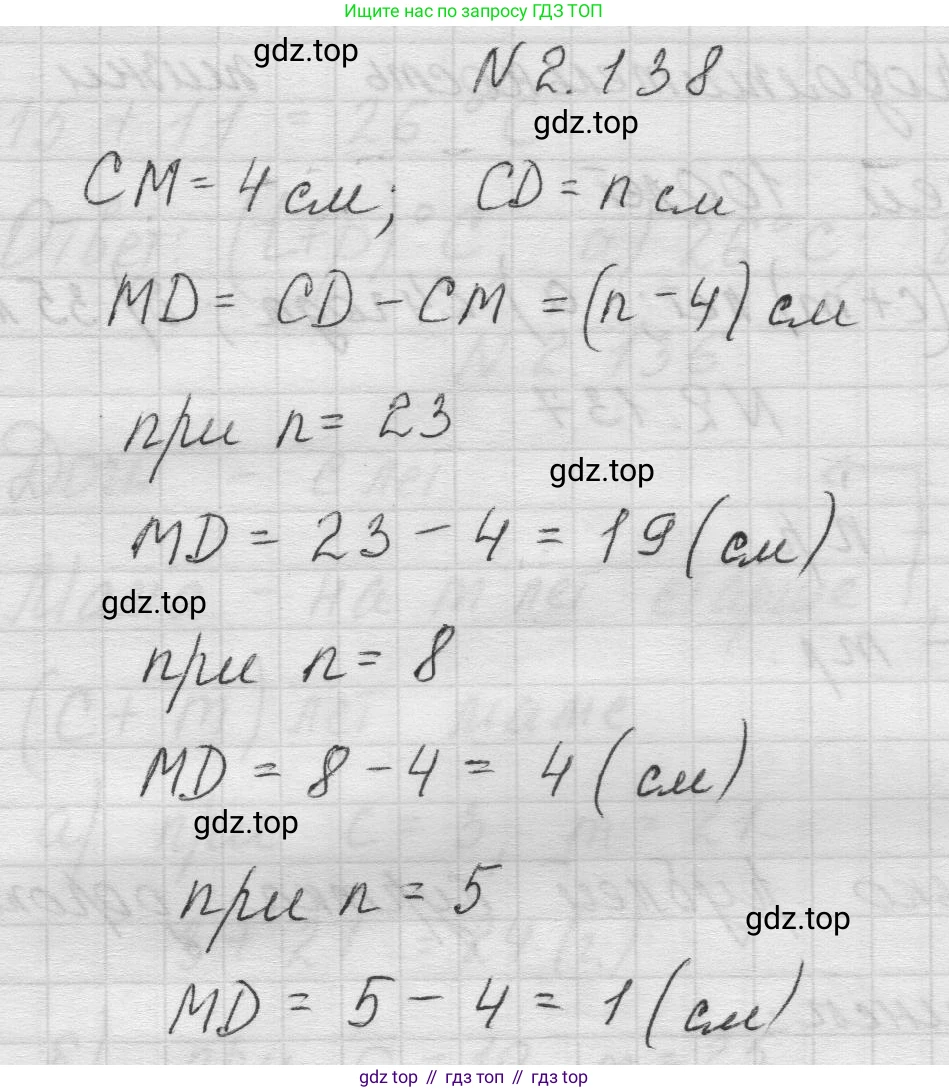 Ищите нас по запросу ГДЗ ТОП
gdz.top
N 2.138
gdz.top
CM = 4 см; CD = n см
MD = CD - CM = (n - 4) см
при n = 23
gdz.top
MD = 23 - 4 = 19 (см)
gdz.top
при n = 8
MD = 8 - 4 = 4 (см)
gdz.top
при n = 5
gdz.top
MD = 5 - 4 = 1 (см)
gdz.top // гдз.топ // гдз.top